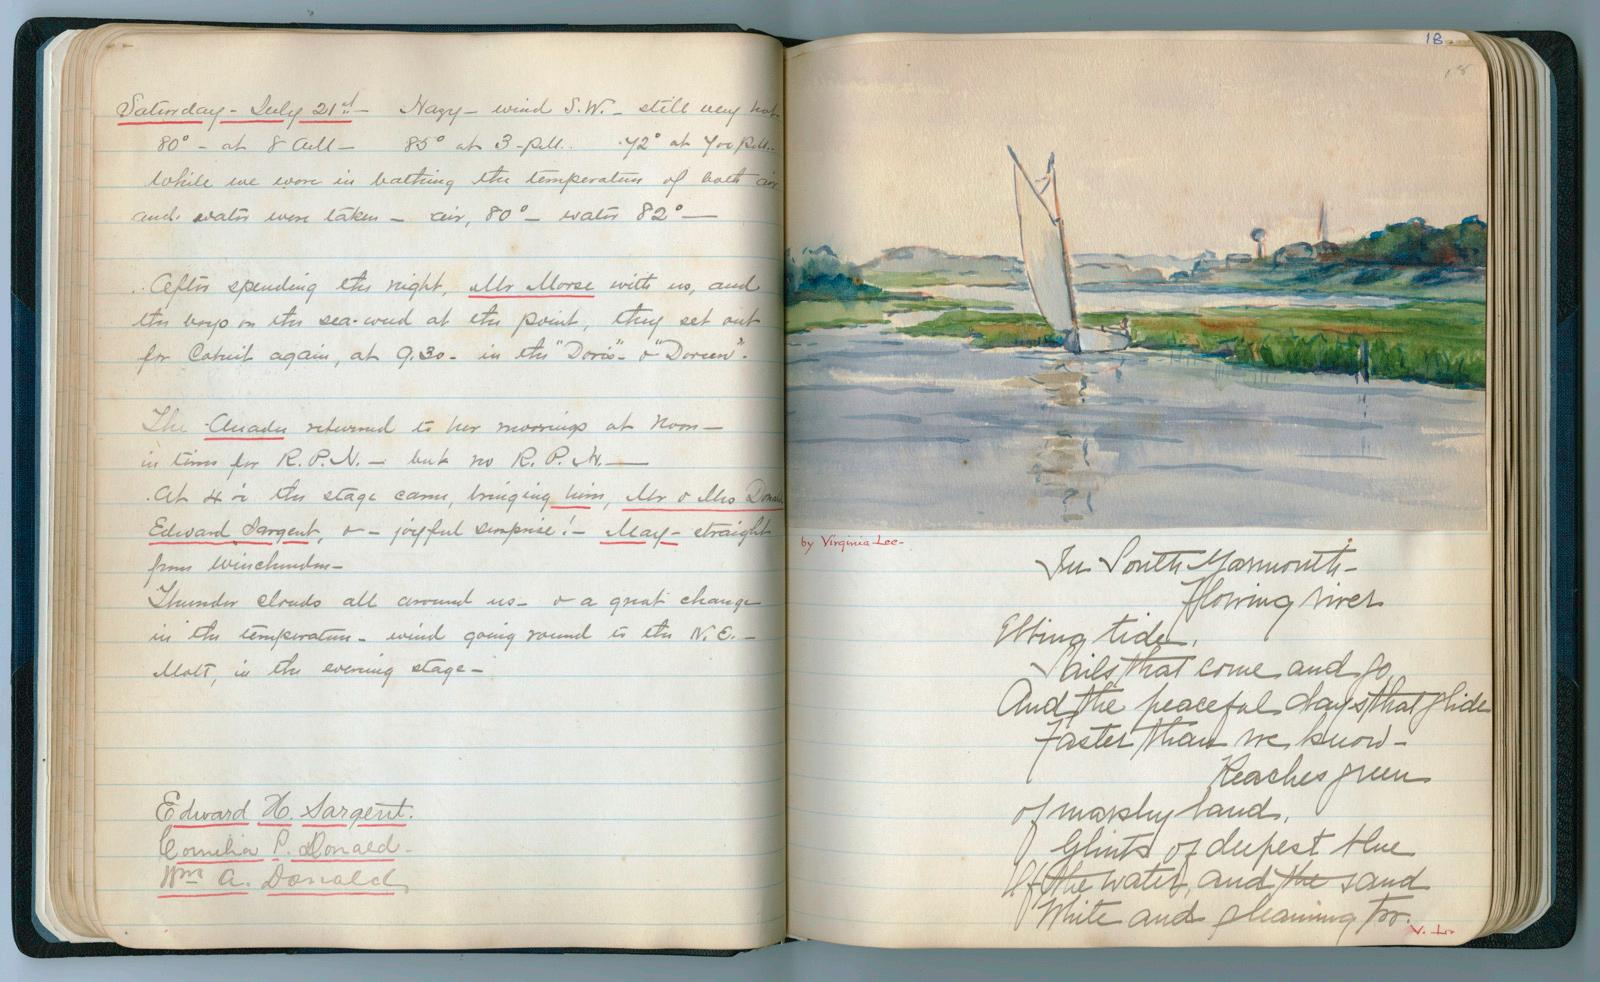 Saturday - July 21st - Hazy - wind S.W. - still very hot
80° - at 8 AM - 85° at 3 - P.M. 72° at 7 P.M.
While we were in bathing the temperature of both air
and water were taken - air, 80° - water 82° -
After spending the night, Mr Morse with us, and
the boys on the sea-weed at the point, they set out
for Cotuit again, at 9.30 - in the "Doris" - & "Doreen".
The returned to her moorings at Noon -
in time for R.P.N. - but no R.P.N. -
At 4 the stage came, bringing him, Mr & Mrs Donald
Edward Sargent, & - joyful surprise! - May - straight
from Winchendon -
Thunder clouds all around us - & a great change
in the temperature - wind going round to the N.E. -
Molt, in the evening stage -
Edward H. Sargent.
Cornelia P. Donald -
Wm A. Donald
18
18
by Virginia Lee -
In South Yarmouth -
flowing river
Ebbing tide,
Sails that come and go,
And the peaceful days that glide
Faster than we know -
Reaches green
of marshy land,
Glints of deepest blue
Of the water, and the sand
White and gleaming too.
V. L.